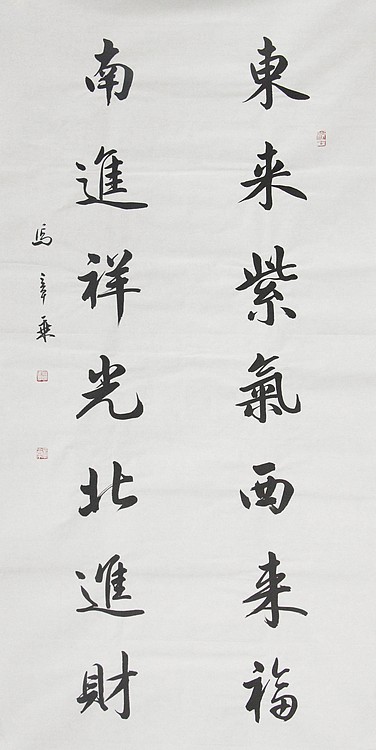 東来紫氣西来福
南進祥光北進財
馬彥乘